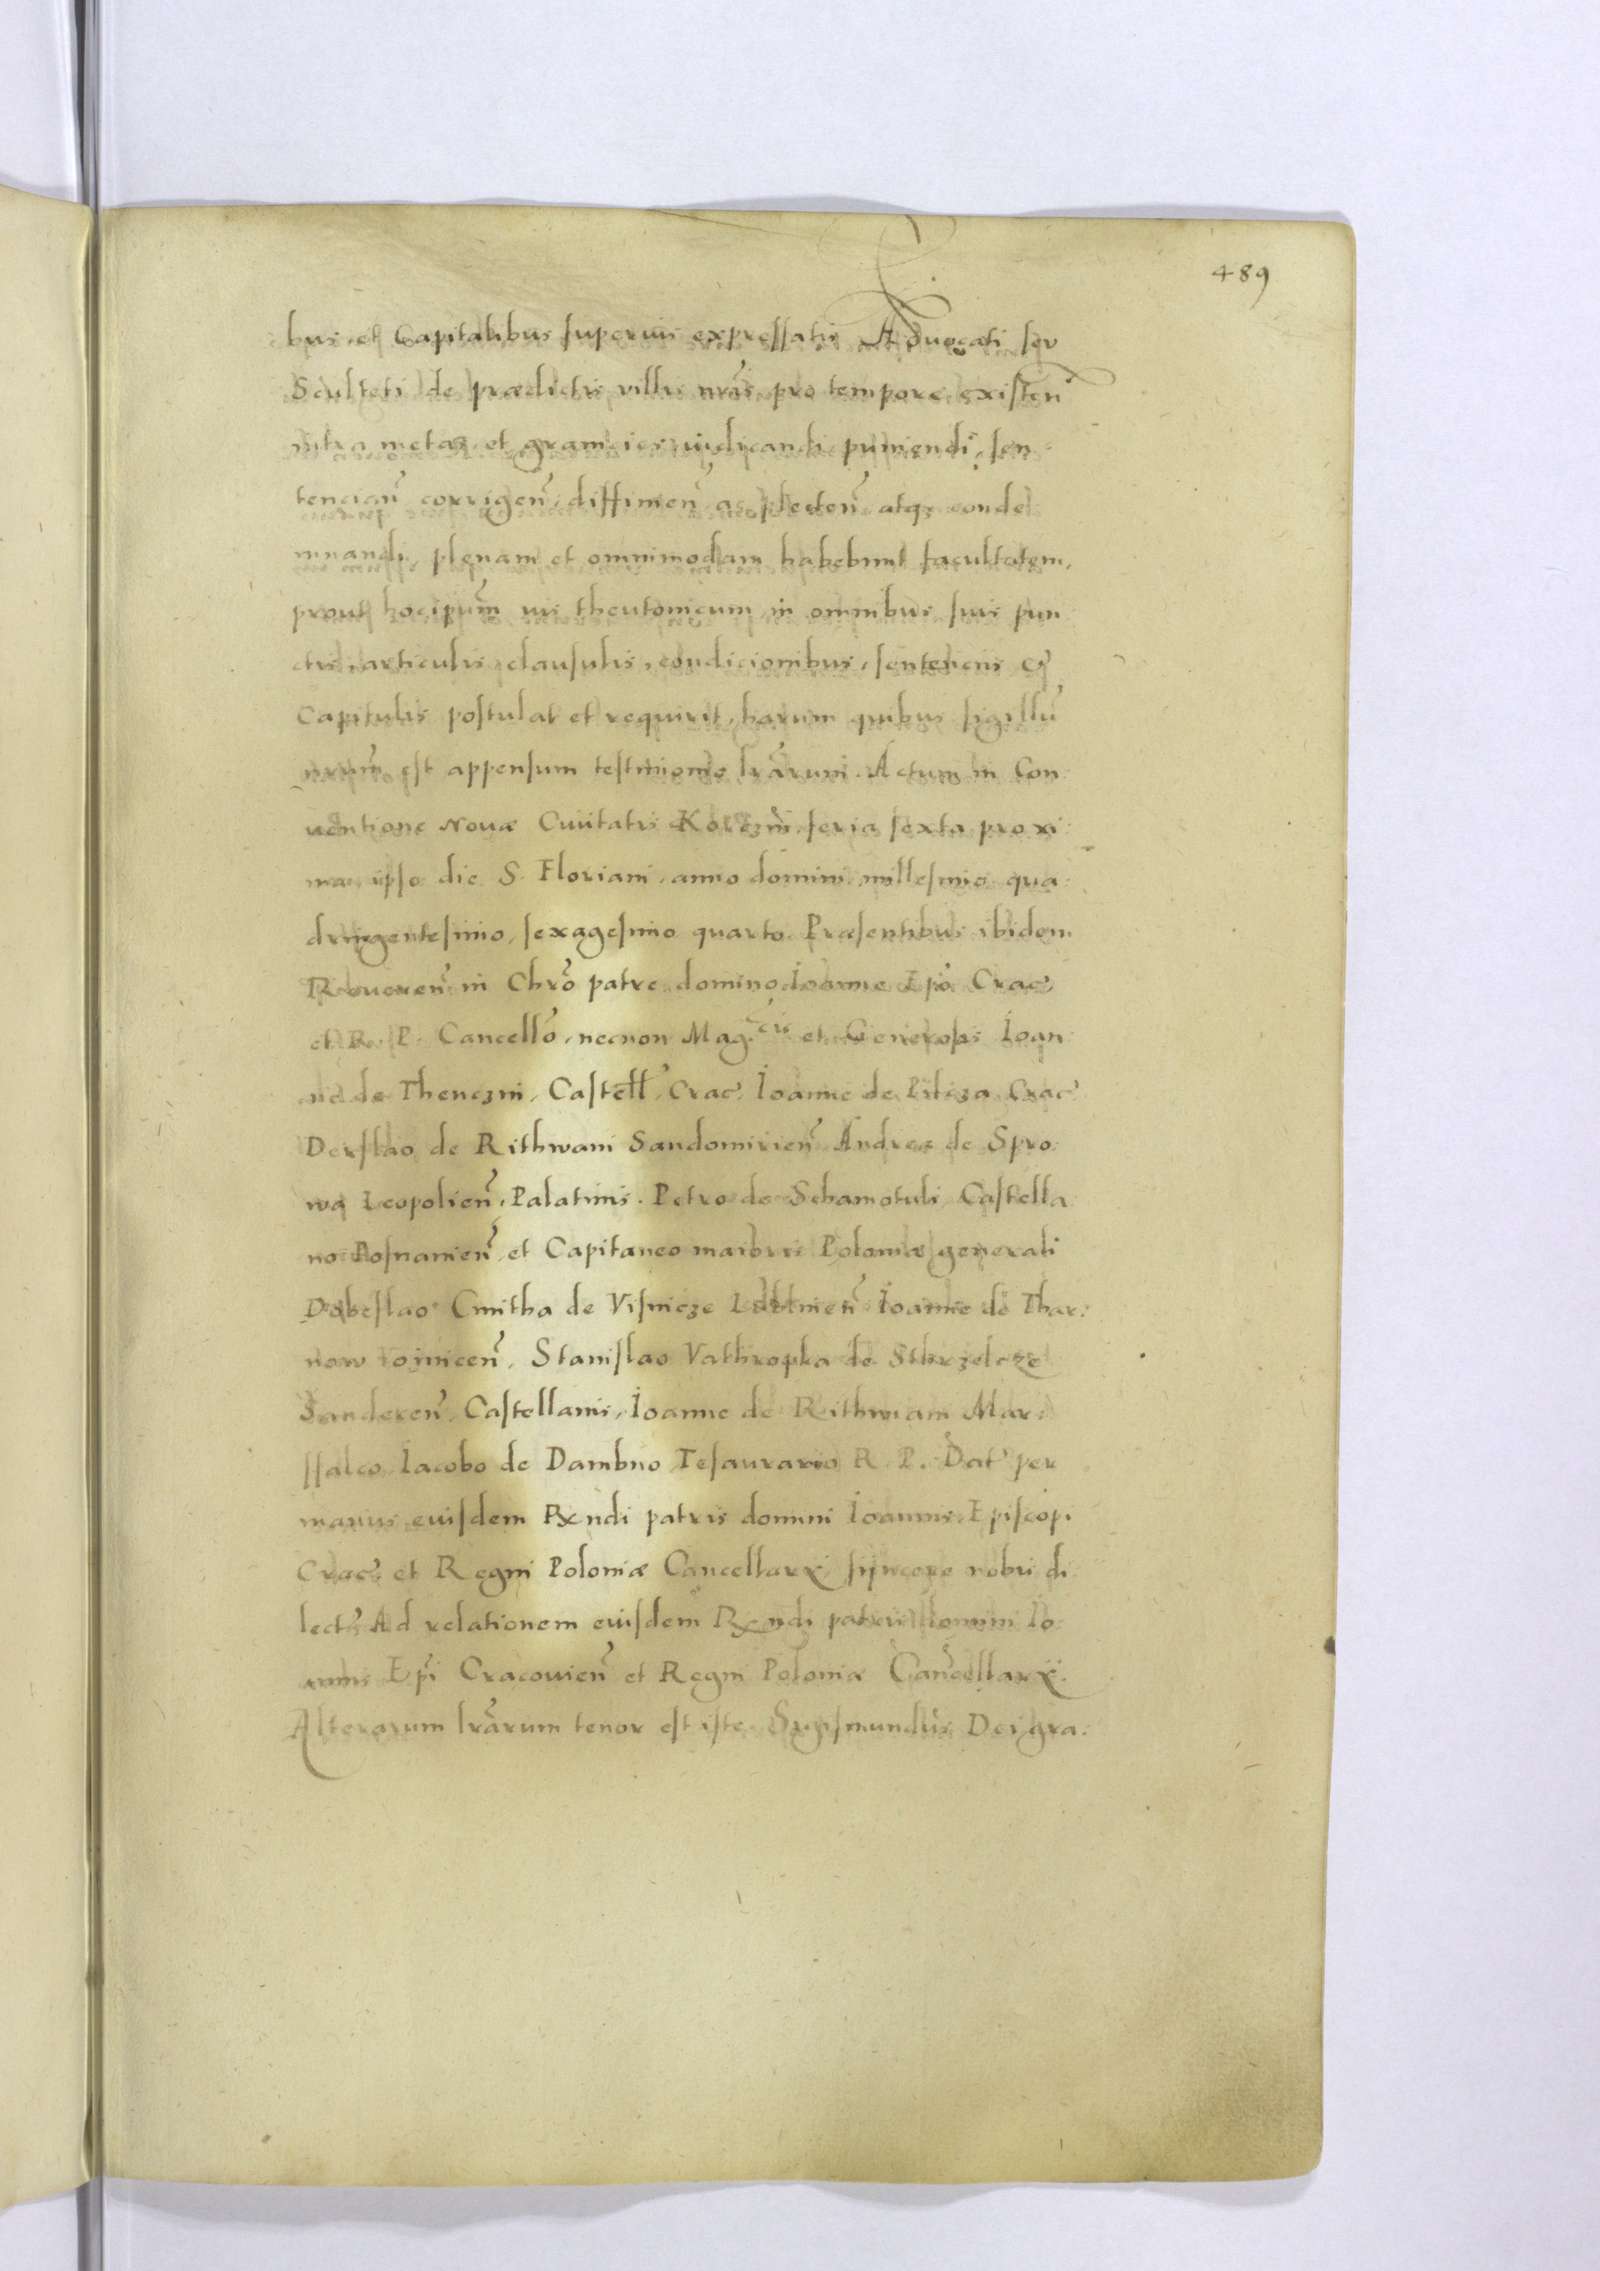 489
bus, et Capitalibus superius expressatis Aduocati seu
Sculteti de prædictis villis nris pro tempore existen̄
intra metas et granicies iudicandi puniendi, sen
tencian̄ corrigen̄, diffinien̄ ac plecten̄ atqȝ conde
mnandi, plenam et omnimodam habebunt facultatem,
prout hoc ipum ius theutonicum in omnibus suis pun
ctis, articulis, clausulis, condicionibus, sentenciis et
Capitulis postulat et requirit, harum quibus sigillū
nrum est appensum testimonio lrārum. Actum in Con
uentione Nouæ Ciuitatis Korczin, feria sexta proxi
ma ipso die S. Floriani, anno domini millesimo qua
dringentesimo, sexagesimo quarto Præsentibus ibidem
Reueren̄ in Chrō patre domino Ioanne Epō Crac̄
et R. P. Cancellō, necnon Mag.cis et Generosis Ioan
ne de Thenczin, Castell̄, Crac̄, Ioanne de Pilcza Crac̄
Derslao de Rithwani Sandomirien̄ Andrea de Spro
wa Leopolien̄, Palatinis. Petro de Schamotuli Castella
no Posnanien̄ et Capitaneo maioris Poloniæ generali
Dobeslao Cmitha de Visnicze Lublinen̄ Ioanne de Thar
now Woinicen̄, Stanislao Vathropka de Sthrzelcze
Sanderen̄, Castellanis, Ioanne de Rithwiani Mar
ssalco Iacobo de Dambno Tesaurario R. P. Dat̄ per
manus eiusdem Rendi patris domini Ioannis Episcopi
Crac̄ et Regni Poloniæ Cancellarii sijncere nobis di
lecti Ad relationem eiusdem Rendi patris domini Io
annis Epi Cracouien̄ et Regni Poloniæ Cancellarii.
Alterarum lrārum tenor est iste Sigismundus Dei gra